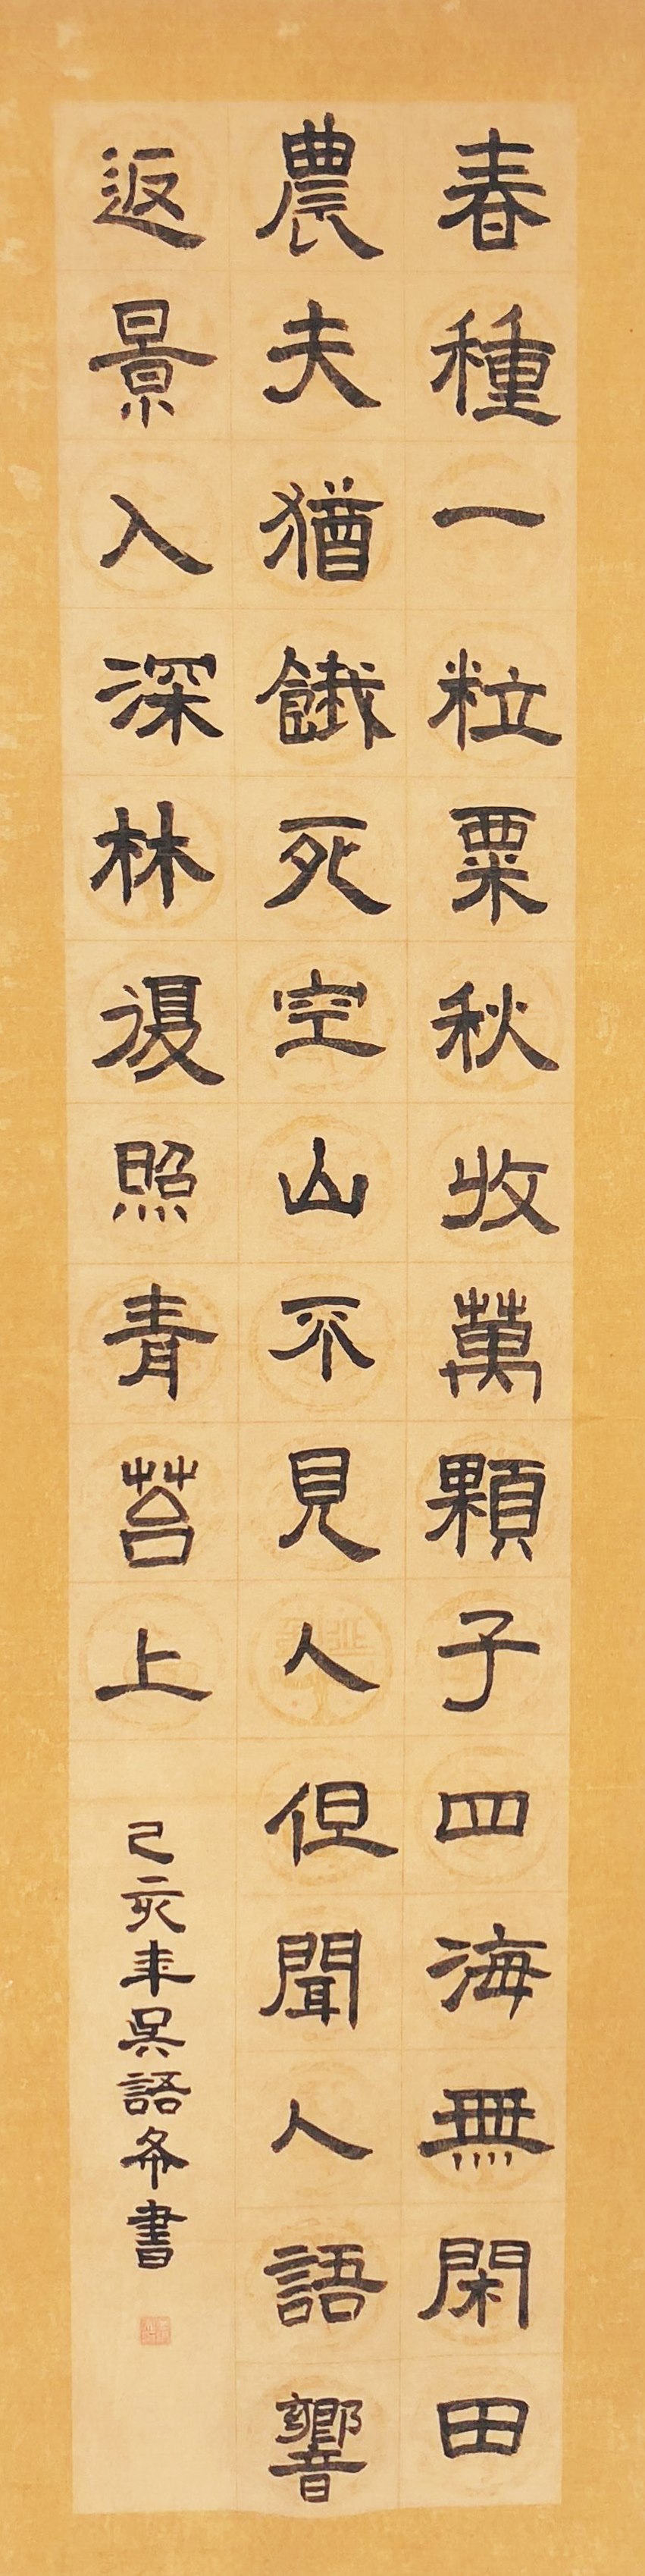 春種一粒粟秋收萬顆子四海無閑田
農夫猶餓死空山不見人但聞人語響
返景入深林復照青苔上
己亥年吳語希書